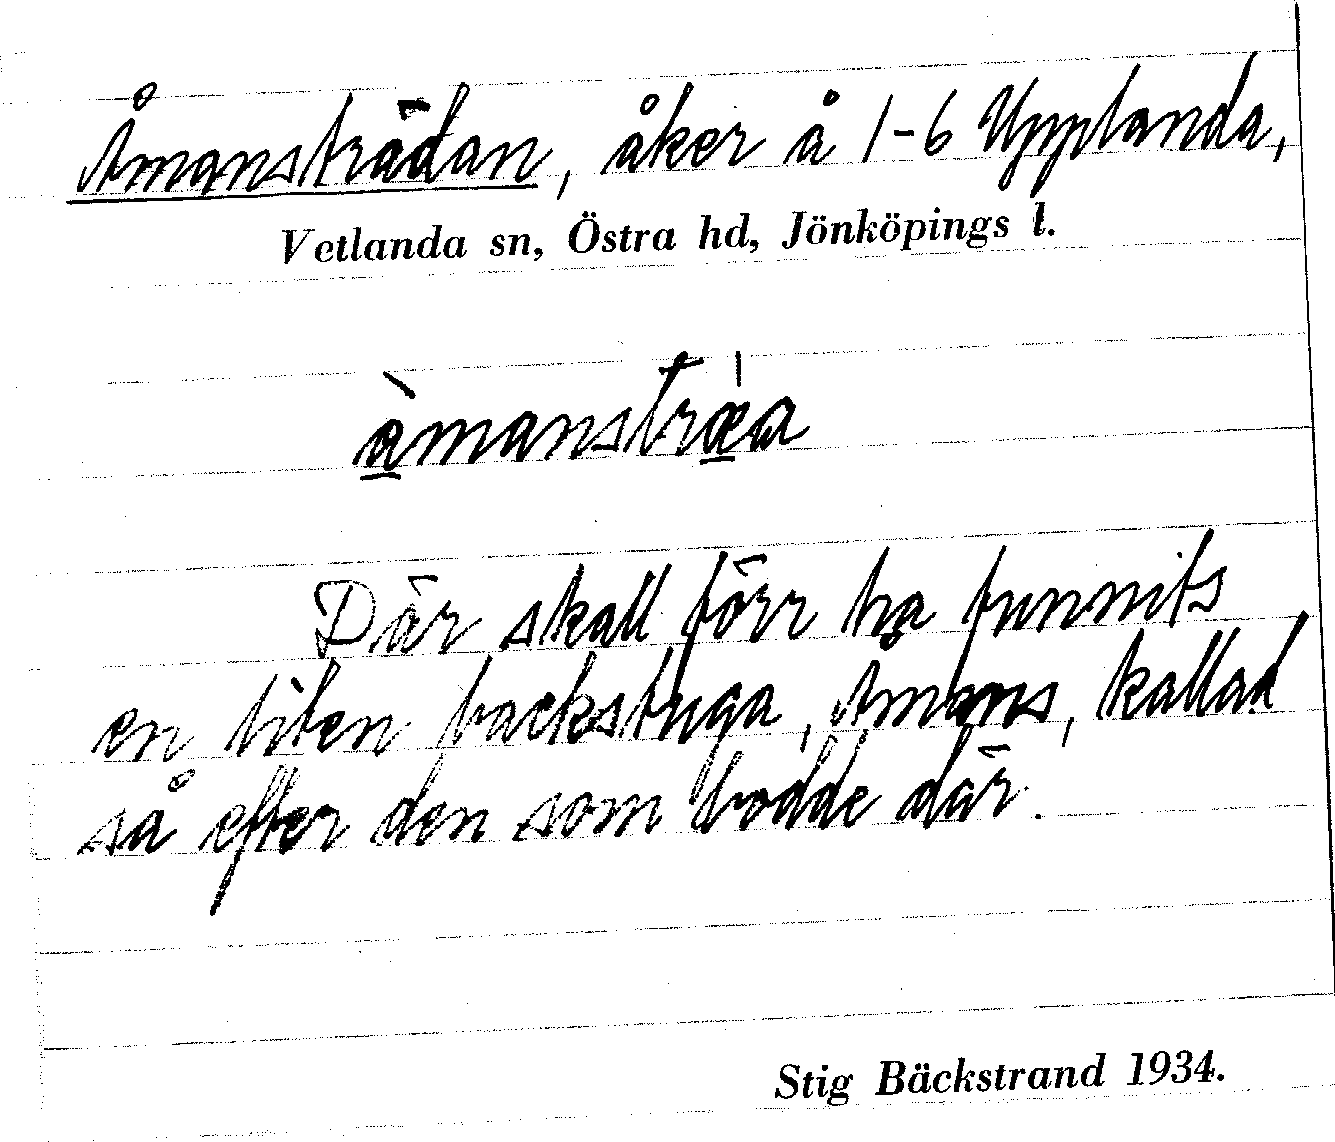 Åmansträdan, åker å 1-6 Upplanda,
Vetlanda sn, Östra hd, Jönköpings l.
àmanstræ̍a
Där skall förr ha funnits
en liten backstuga, Åmans, kallad
så efter den som bodde där.
Stig Bäckstrand 1934.